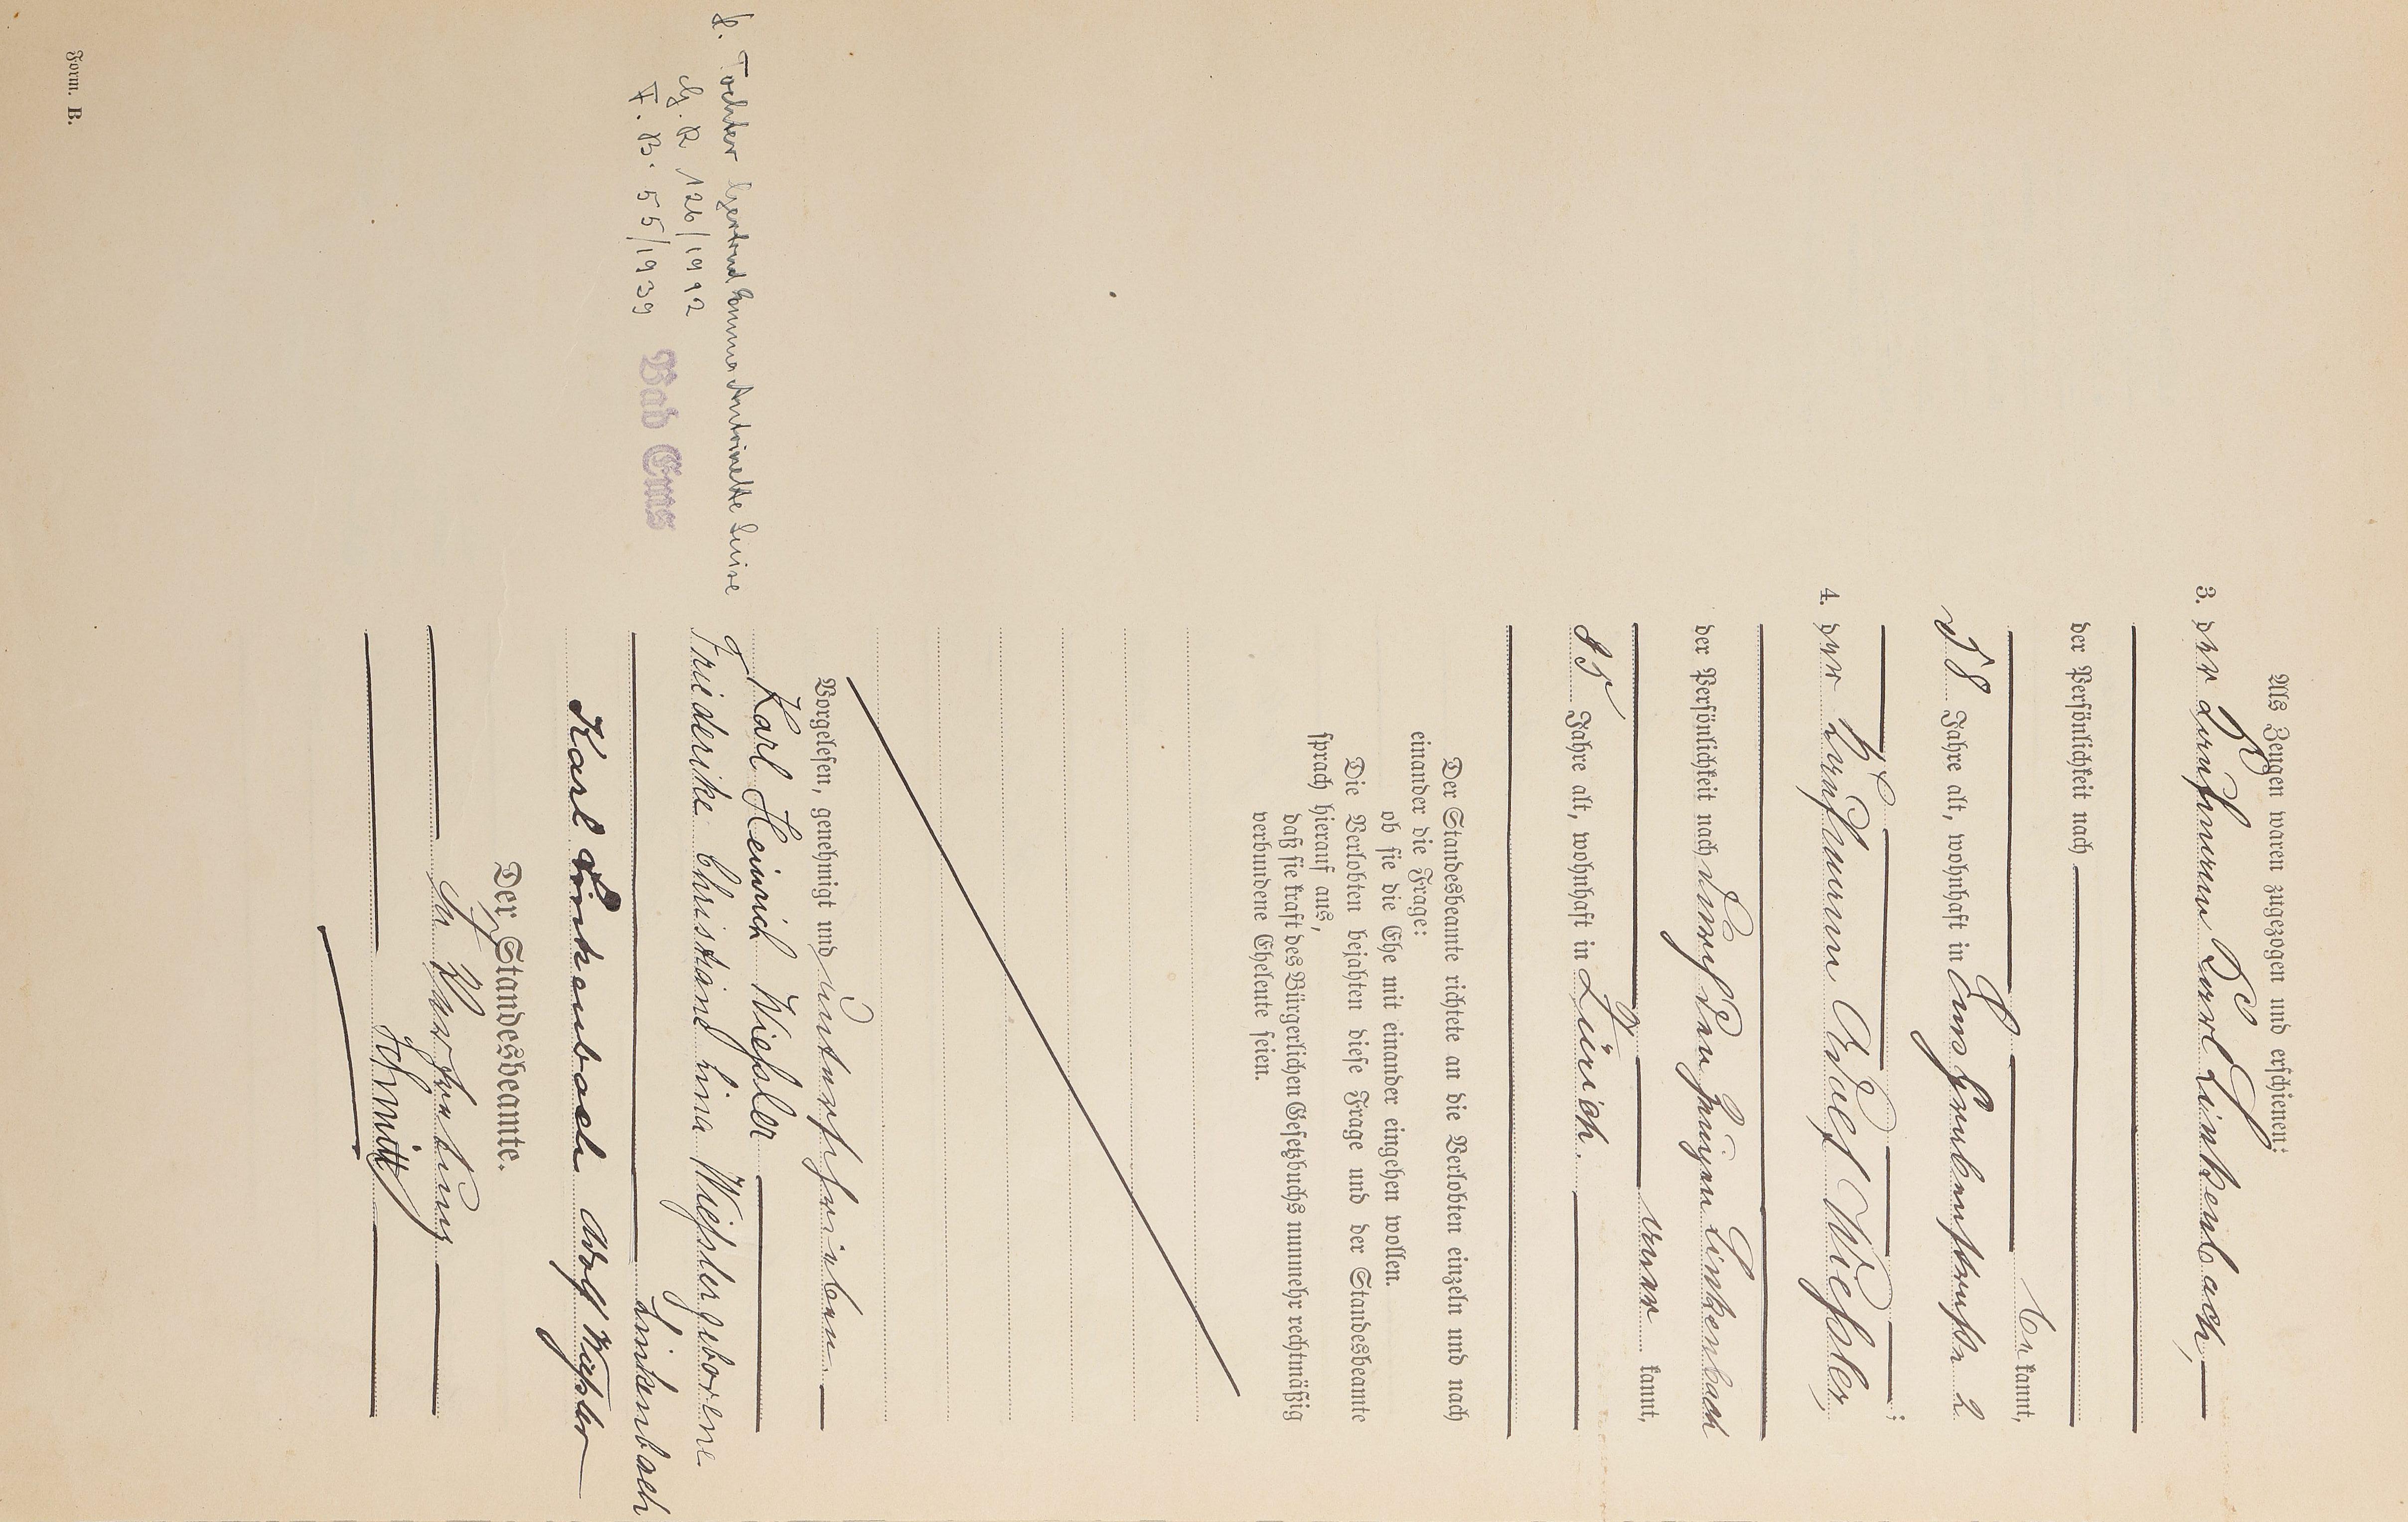 Als Zeugen waren zugezogen und erschienen:
3. der Karl Linkenbach,
der Persönlichkeit nach
be kannt,
58 Jahre alt, wohnhaft in Ems 2
;
4. der Kaufmann Adolf Wießler,
der Persönlichkeit nach durch den Zeugen Linkenbach
aner kannt,
25 Jahre alt, wohnhaft in Zürich.
Der Standesbeamte richtete an die Verlobten einzeln und nach
einander die Frage:
ob sie die Ehe mit einander eingehen wollen.
Die Verlobten bejahten diese Frage und der Standesbeamte
sprach hierauf aus,
daß sie kraft des Bürgerlichen Gesetzbuchs nunmehr rechtmäßig
verbundene Eheleute seien.
Vorgelesen, genehmigt und unterschrieben.
Karl Heinrich Wießler
Friederike Christiane Lina Wießler geborene
Linkenbach
Karl Linkenbach Adolf Wießler
Der Standesbeamte.
In Vertretung
Schmitt
1. Tochter Gertrud Emma Antoinette Luise
R 126/1992
F. B. 55/1939 Bad Ems
Form. B.